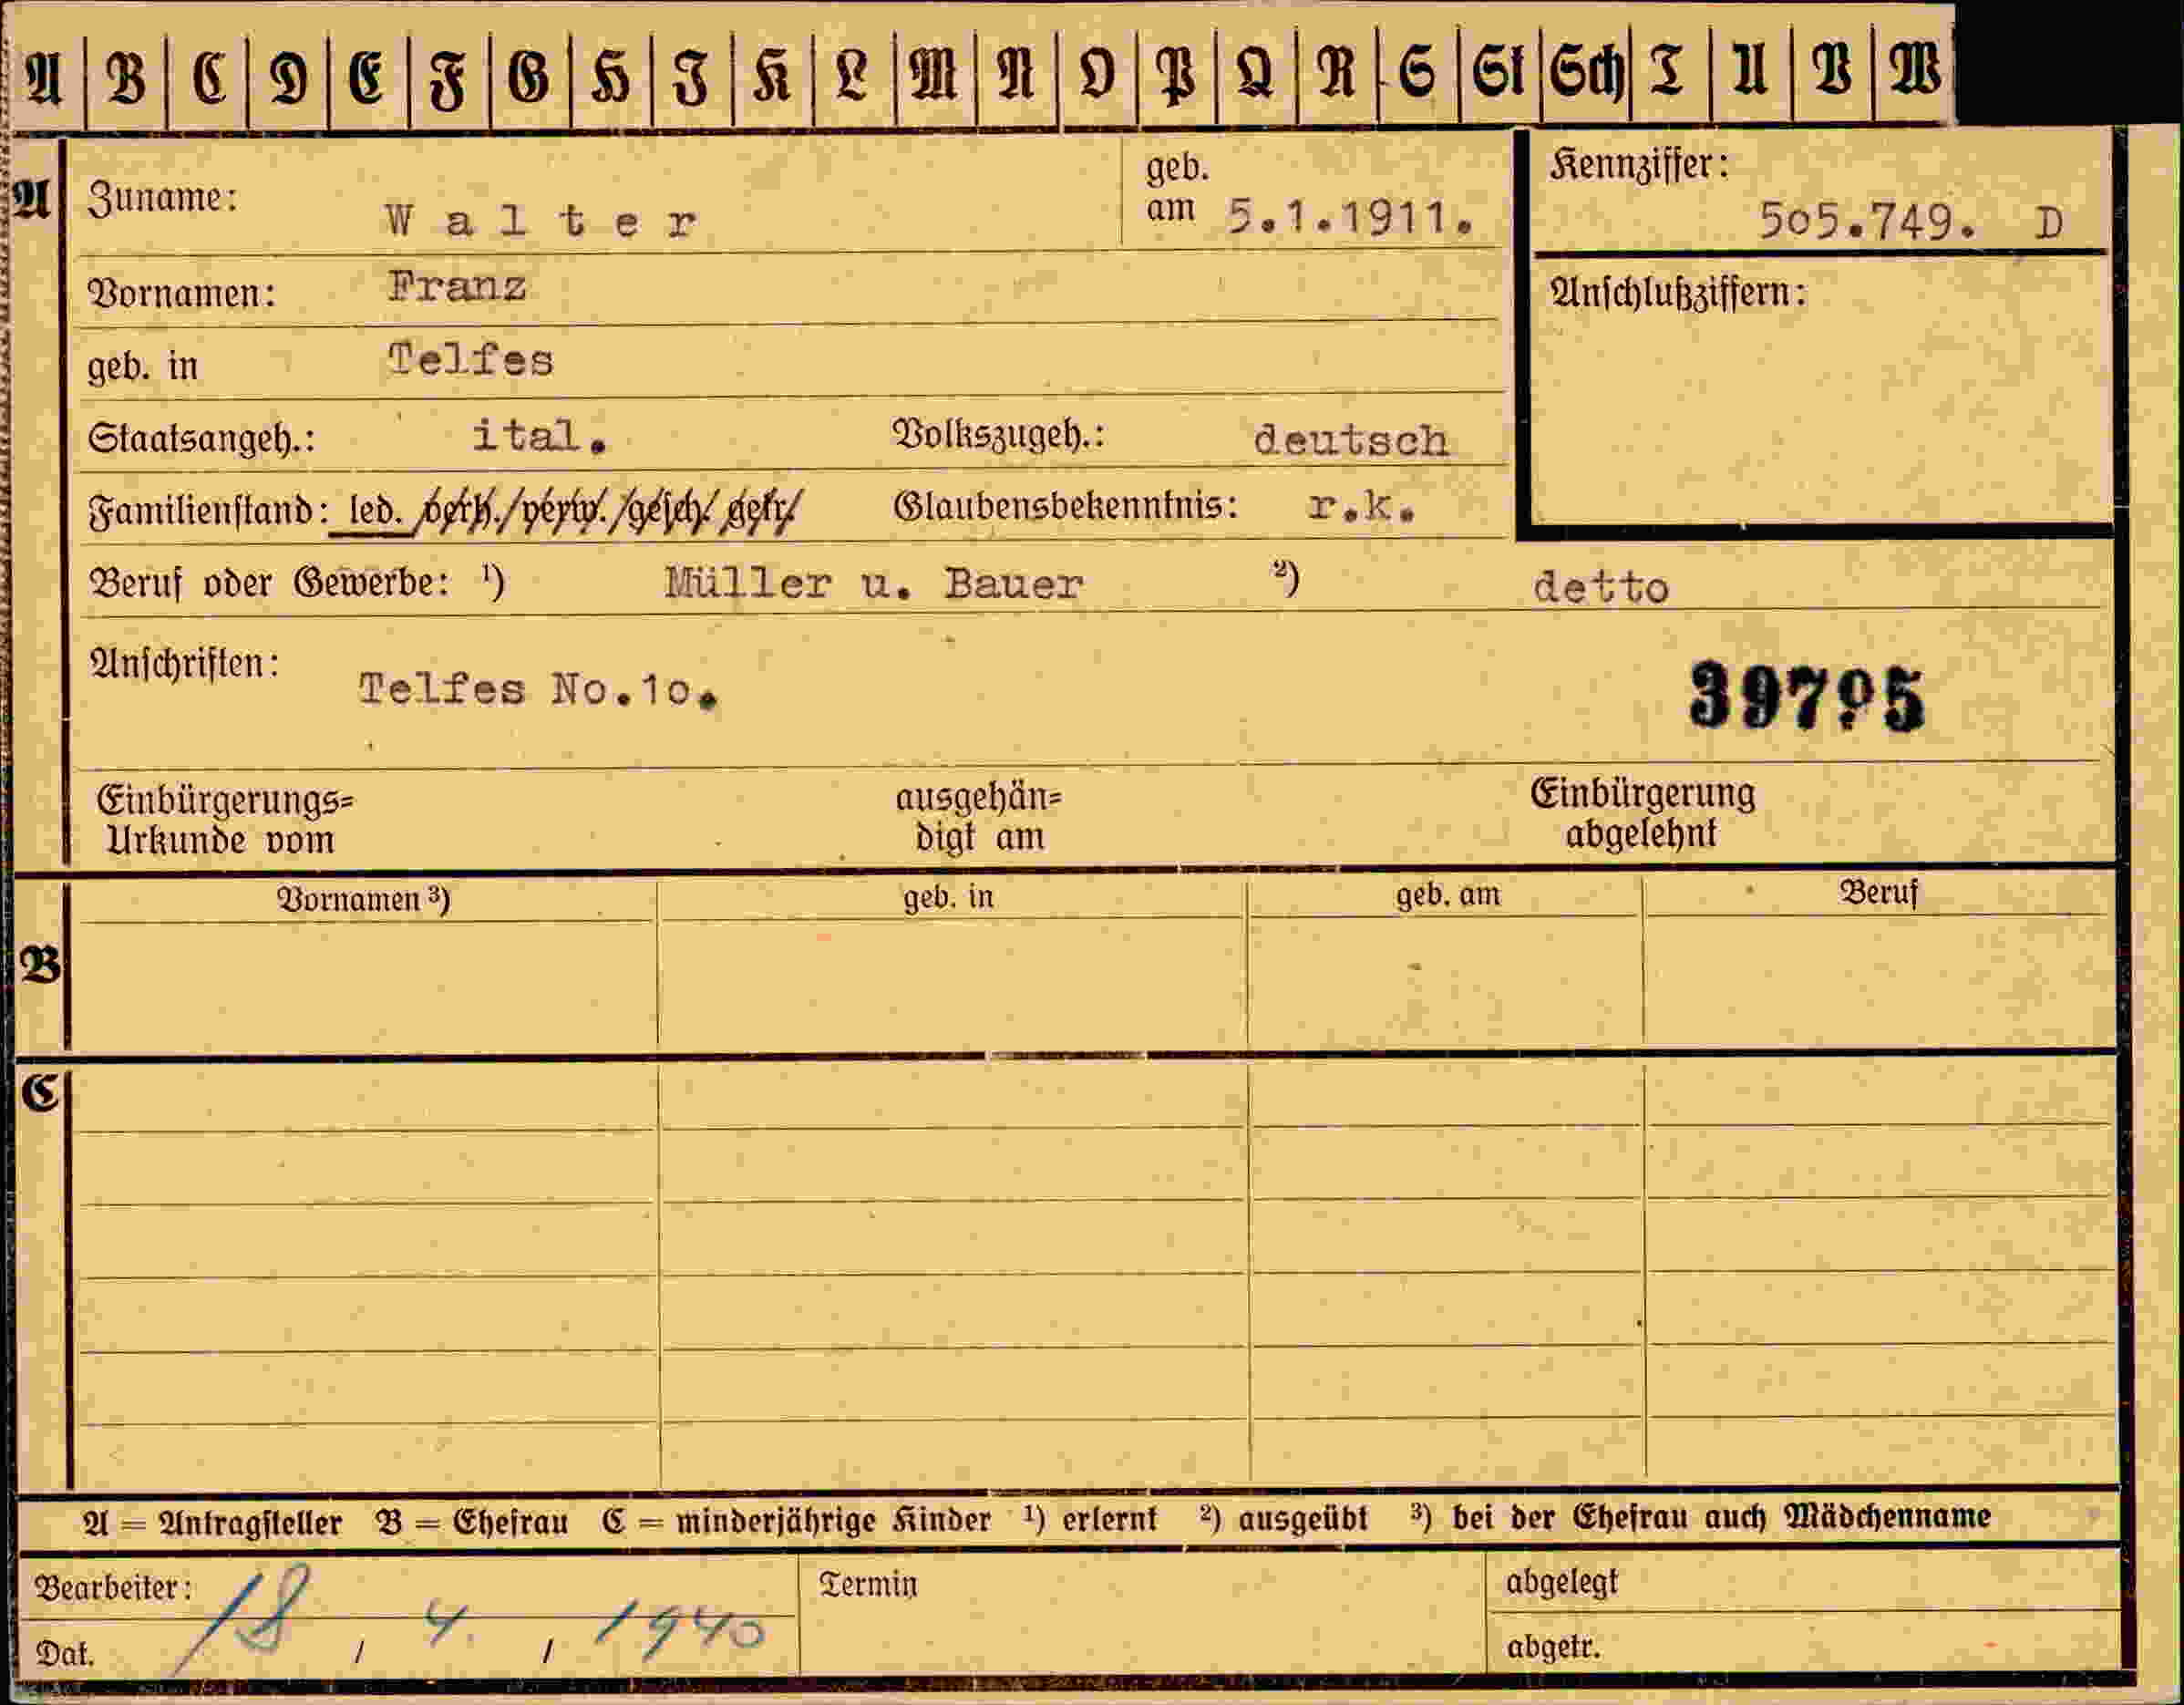 A | B | C | D | E | F | G | H | J | K | L | M | N | O | P | Q | R | S | St | Sch | T | U | V | W
A Zuname: Walter geb. am 5.1.1911. Kennziffer: 5o5.749. D
Vornamen: Franz Anschlußziffern:
geb. in Telfes
Staatsangeh.: ital. Volkszugeh.: deutsch
Familienstand: led. /verh./verw./gesch/ getr/ Glaubensbekenntnis: r.k.
Beruf oder Gewerbe: ¹) Müller u. Bauer ²) detto
Anschriften: Telfes No.1o.
39795
Einbürgerungs= ausgehän= Einbürgerung
Urkunde vom digt am abgelehnt
Vornamen ³) geb. in geb. am Beruf
B
C
A = Antragsteller B = Ehefrau C = minderjährige Kinder ¹) erlernt ²) ausgeübt ³) bei der Ehefrau auch Mädchenname
Bearbeiter: Termin abgelegt
Dat. 18 / 4. / 1940 abgetr.